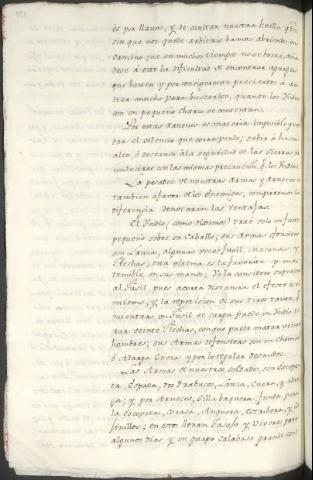 es por llanos, y de ocultar nuestra huella pues
sin que nos quede arbitrio bamos abriendo un
camino que en mucho tiempo no se borra, aña
dese á esto la dificultad de encontrar aguages
que basten y por consiguiente precisados á
mucho para buscarlos, quando los Yndios
con un pequeño charco se contentan.
Por estas razones es casi imposible guar
dar el silencio que corresponde; subir á hacer
alto, ó descanso á la seguridad de las Sierras ni
conducirse con las mismas precauciones que los Yndios.
La pesadez de nuestras armas y arneses es
tambien afavor de los Enemigos, comparemos la
diferencia denotarán las ventajas.
El Yndio, como digimos trae solo un fuste
pequeño sobre su caballo; sus armas ofensivas
son Lanza, algunas veces fusil, macanas, y
flechas; esta ultima es la favorita y mas
temible en sus manos; Yo la considero superior
al fusil, pues acerta distancia el efecto es el
mismo, y la repeticion de sus tiros tanta, que
mientras un fusil se carga puede un Yndio ti
rar veinte flechas, con que puede matar veinte
hombres; sus Armas defensivas son un Chimal
ó Adarga Cuera y por lo regular desnudos.
Las Armas de nuestros soldados, son escope
ta, Espada, dos trabucos, Lanza, Cuera, y adar
ga; y por arneses, silla baquera, funda para
la escopeta, Coraza, Anquera, estriberas, y Co
jinillos; en esto llevan bazafo y viveres para
algunos dias y un guapo calabazo grande con